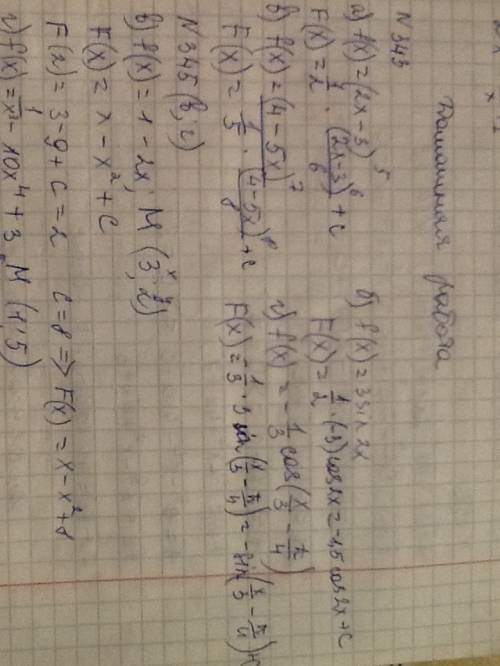 Домашняя работа
N 343
а) f(x) = (2x - 3)^5
F(x) = 1/2 · (2x-3)^6/6 + C
б) f(x) = 3 sin 2x
F(x) = 1/2 · (-3) cos 2x = -1,5 cos 2x + C
в) f(x) = (4 - 5x)^7
F(x) = 1/5 · (4-5x)^8/8 + C
г) f(x) = - 1/3 cos(x/3 - π/4)
F(x) = 1/3 · 3 sin(x/3 - π/4) = - sin(x/3 - π/4) + C
N 345 (в; г)
в) f(x) = 1 - 2x; M (3; 2)
F(x) = x - x² + C
F(x) = 3 - 9 + C = 2 C = 8 => F(x) = x - x² + 8
г) f(x) = 1/x² - 10x⁴ + 3; M (1; 5)